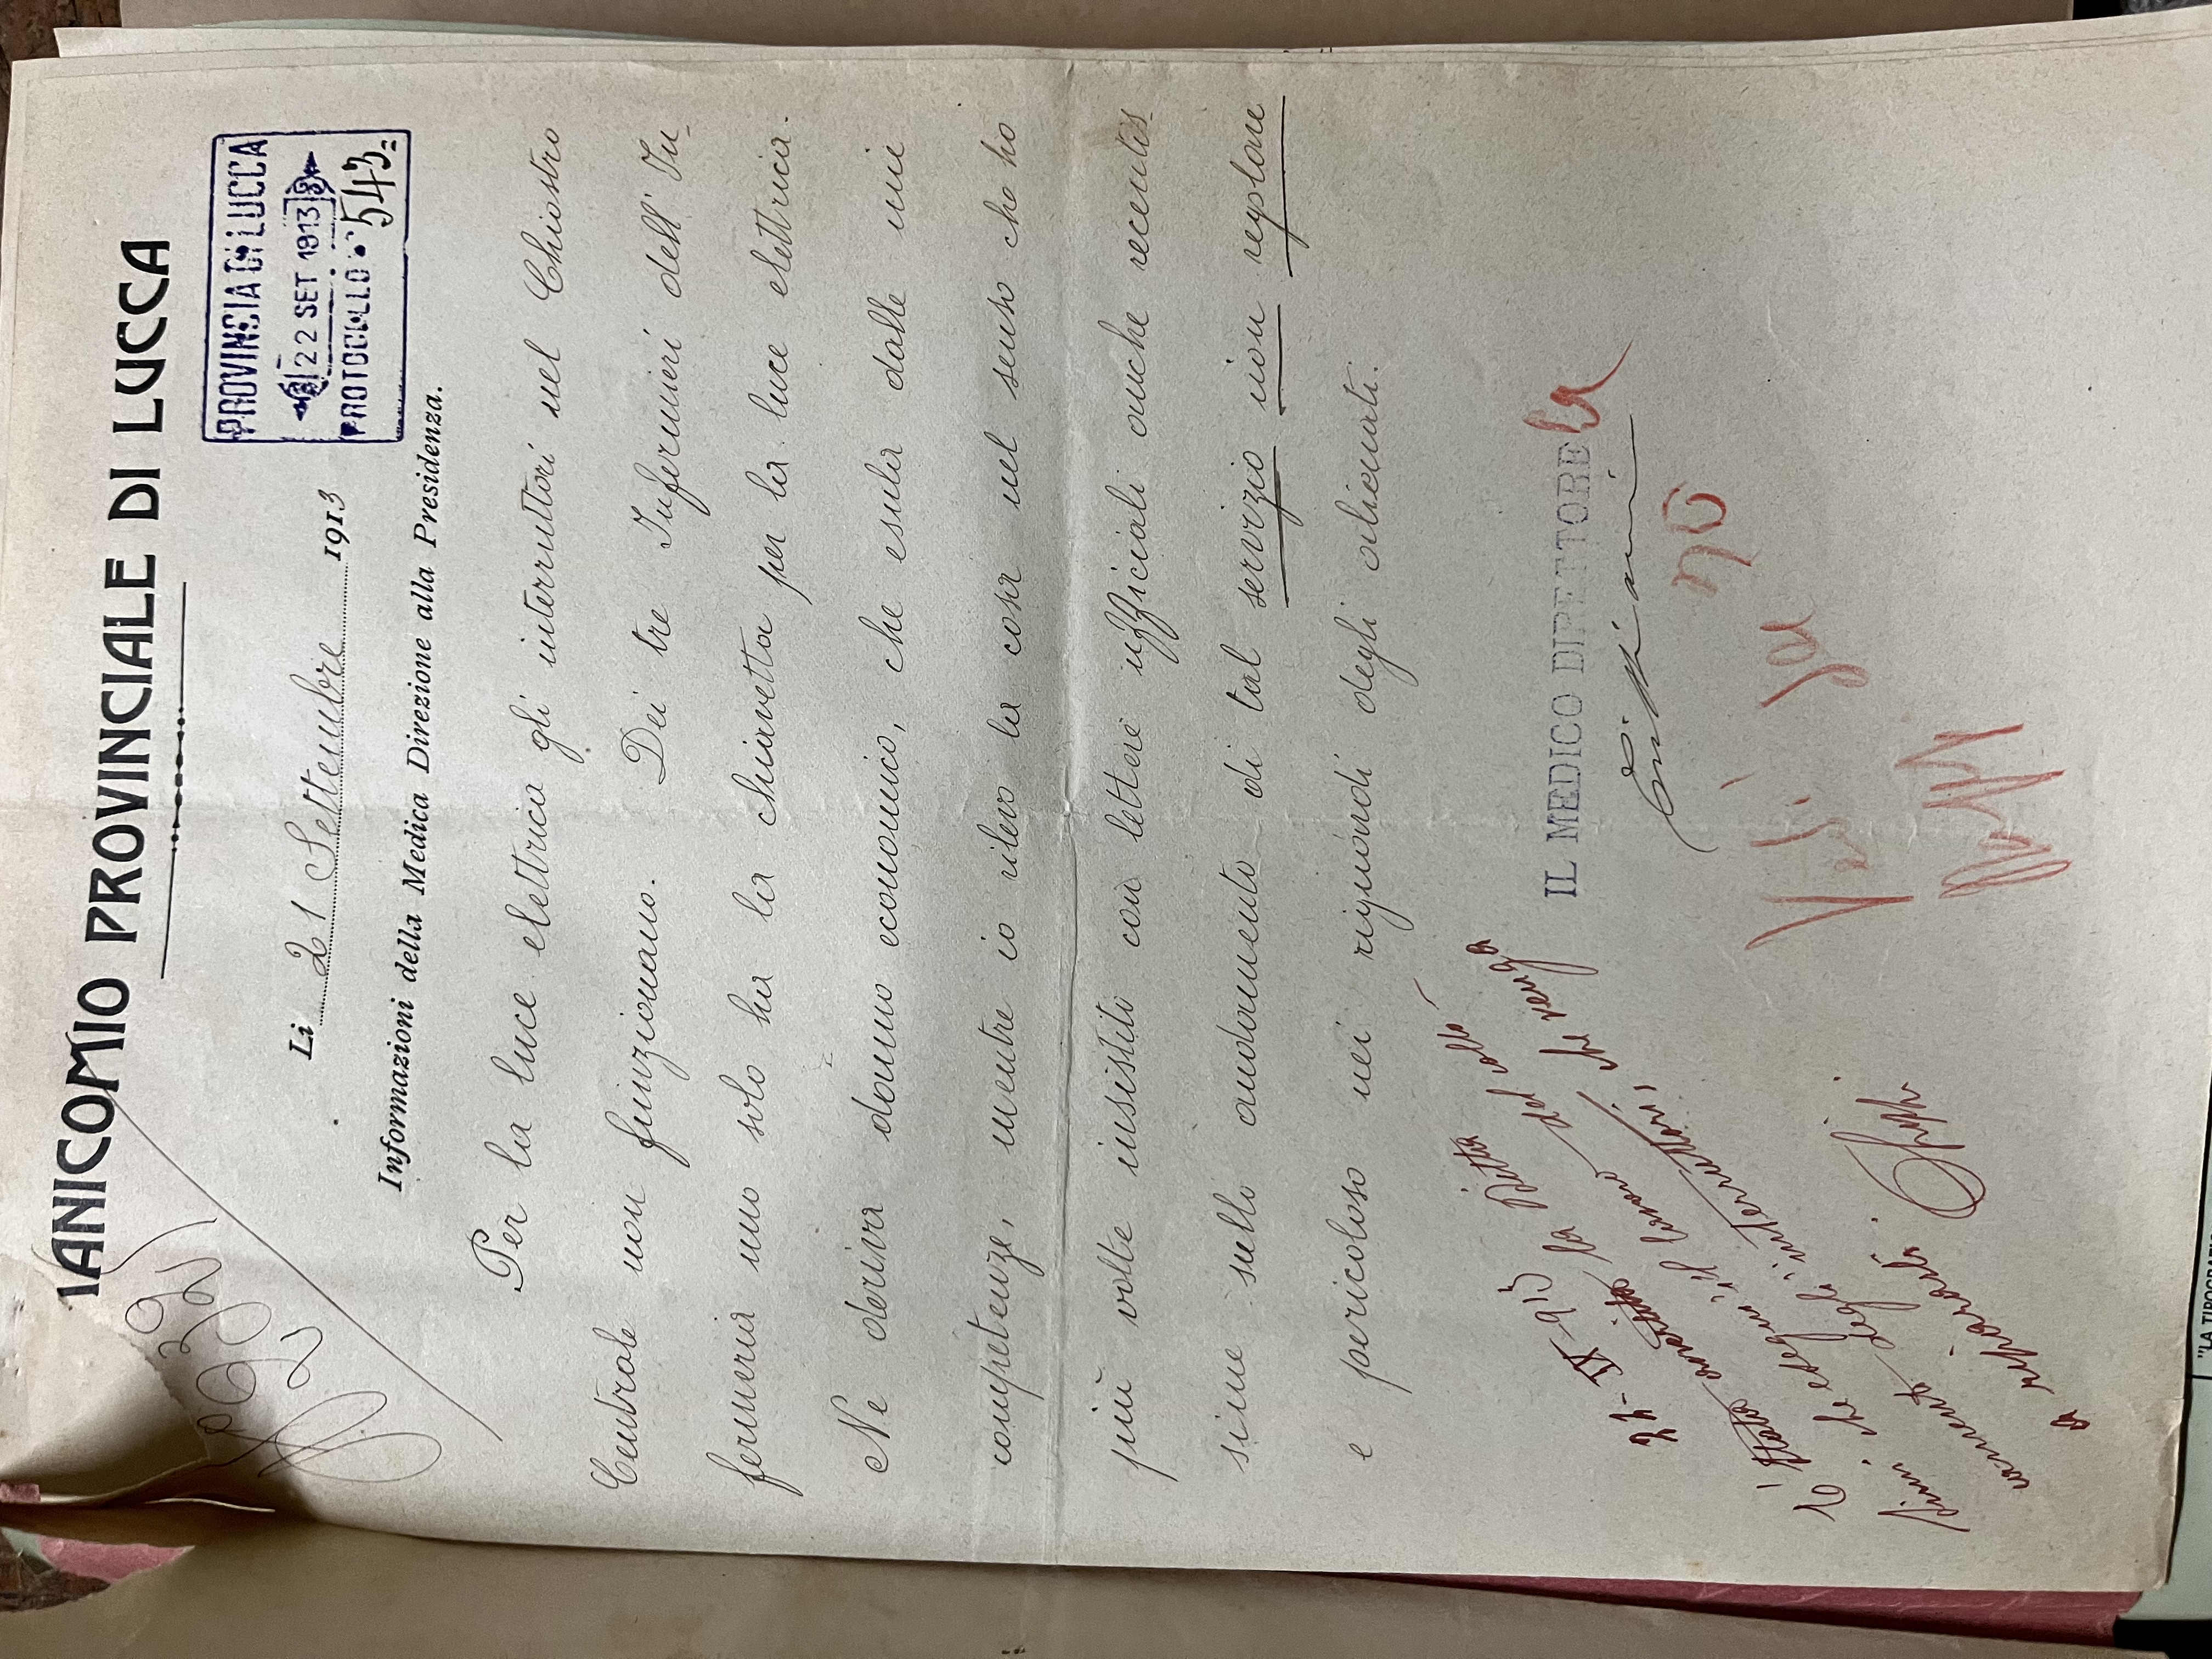 MANICOMIO PROVINCIALE DI LUCCA
PROVINSIA DI LUCCA
22 SET 1913
PROTOCOLLO 543
Li 21 Settembre 1913
Informazioni della Medica Direzione alla Presidenza.
Per la luce elettrica gli interruttori nel Chiostro
Centrale non funzionano. Dei tre Infermieri dell' In-
fermeria uno solo ha la chiavetta per la luce elettrica.
Ne deriva danno economico, che esula dalle mie
competenze, mentre io rilevo la cosa nel senso che ho
più volte insistito con lettere ufficiali anche recentis-
sime sullo andamento di tal servizio non regolare
e pericoloso nei riguardi degli alienati.
IL MEDICO DIRETTORE
la
no
22-IX-913
È stata avvertita la Ditta
che venga
degli interruttori,
"LA TIPOGRAFIC